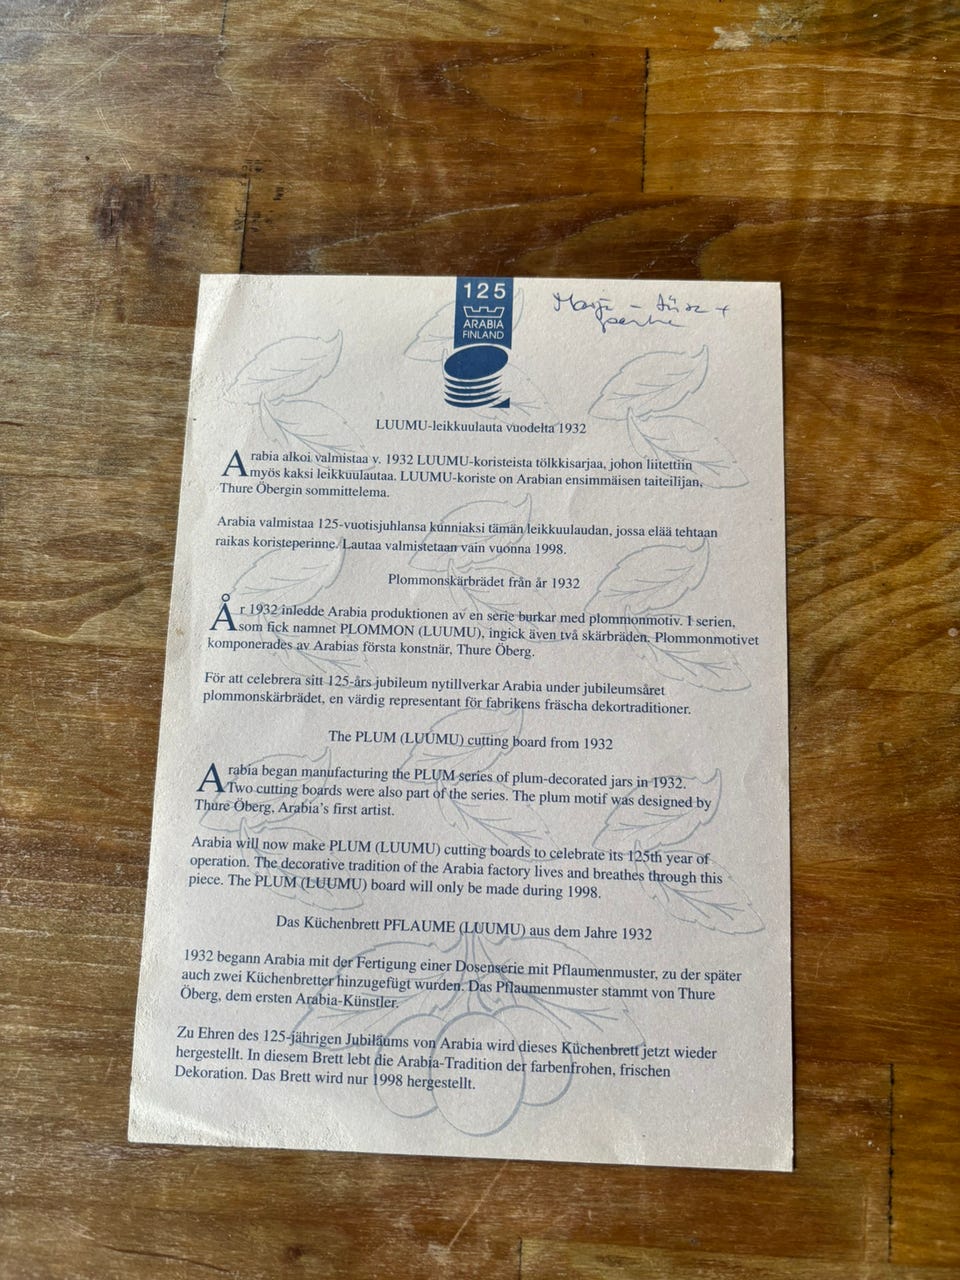 125
ARABIA
FINLAND
LUUMU-leikkuulauta vuodelta 1932
Arabia alkoi valmistaa v. 1932 LUUMU-koristeista tölkkisarjaa, johon liitettiin
myös kaksi leikkuulautaa. LUUMU-koriste on Arabian ensimmäisen taiteilijan,
Thure Öbergin sommittelema.
Arabia valmistaa 125-vuotisjuhlansa kunniaksi tämän leikkuulaudan, jossa elää tehtaan
raikas koristeperinne. Lautaa valmistetaan vain vuonna 1998.
Plommonskärbrädet från år 1932
År 1932 inledde Arabia produktionen av en serie burkar med plommonmotiv. I serien,
som fick namnet PLOMMON (LUUMU), ingick även två skärbräden. Plommonmotivet
komponerades av Arabias första konstnär, Thure Öberg.
För att celebrera sitt 125-års jubileum nytillverkar Arabia under jubileumsåret
plommonskärbrädet, en värdig representant för fabrikens fräscha dekortraditioner.
The PLUM (LUUMU) cutting board from 1932
Arabia began manufacturing the PLUM series of plum-decorated jars in 1932.
Two cutting boards were also part of the series. The plum motif was designed by
Thure Öberg, Arabia's first artist.
Arabia will now make PLUM (LUUMU) cutting boards to celebrate its 125th year of
operation. The decorative tradition of the Arabia factory lives and breathes through this
piece. The PLUM (LUUMU) board will only be made during 1998.
Das Küchenbrett PFLAUME (LUUMU) aus dem Jahre 1932
1932 begann Arabia mit der Fertigung einer Dosenserie mit Pflaumenmuster, zu der später
auch zwei Küchenbretter hinzugefügt wurden. Das Pflaumenmuster stammt von Thure
Öberg, dem ersten Arabia-Künstler.
Zu Ehren des 125-jährigen Jubiläums von Arabia wird dieses Küchenbrett jetzt wieder
hergestellt. In diesem Brett lebt die Arabia-Tradition der farbenfrohen, frischen
Dekoration. Das Brett wird nur 1998 hergestellt.